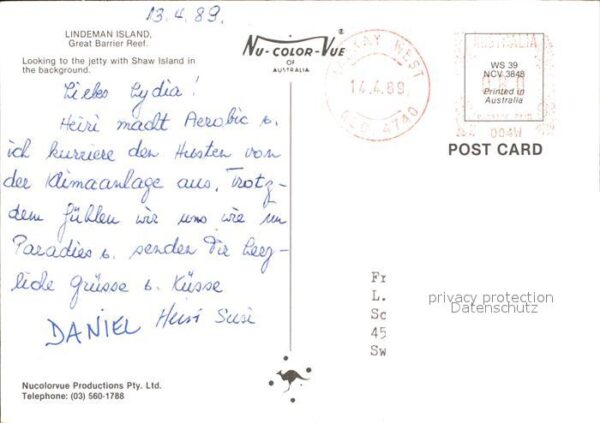 13.4.89.
LINDEMAN ISLAND,
Great Barrier Reef.
Looking to the jetty with Shaw Island in
the background.
NU-COLOR-VUE®
OF
AUSTRALIA
MACKAY WEST
14.4.89
QLD 4740
AUSTRALIA
WS 39
NCV 3848
Printed in
Australia
POSTAGE PAID
004W
POST CARD
Liebes Lydia!
Heiri macht Aerobic u.
ich kurriere den Husten von
der Klimaanlage aus. Trotz-
dem fühlen wir uns wie im
Paradies u. senden Dir herz-
liche Grüsse u. Küsse
DANIEL Heiri Susi
Fr
L.
Sc
45
Sw
privacy protection
Datenschutz
Nucolorvue Productions Pty. Ltd.
Telephone: (03) 560-1788